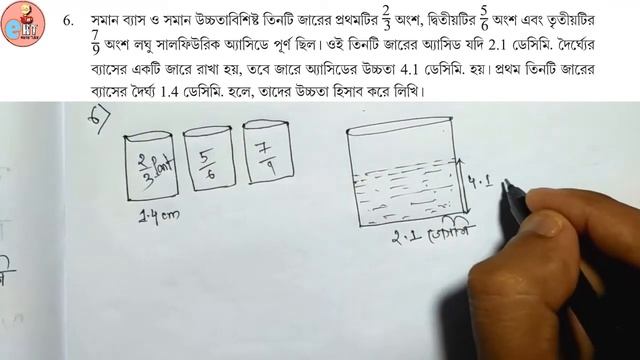 6. সমান ব্যাস ও সমান উচ্চতাবিশিষ্ট তিনটি জারের প্রথমটির 2/3 অংশ, দ্বিতীয়টির 5/6 অংশ এবং তৃতীয়টির
7/9 অংশ লঘু সালফিউরিক অ্যাসিডে পূর্ণ ছিল। ওই তিনটি জারের অ্যাসিড যদি 2.1 ডেসিমি. দৈর্ঘ্যের
ব্যাসের একটি জারে রাখা হয়, তবে জারে অ্যাসিডের উচ্চতা 4.1 ডেসিমি. হয়। প্রথম তিনটি জারের
ব্যাসের দৈর্ঘ্য 1.4 ডেসিমি. হলে, তাদের উচ্চতা হিসাব করে লিখি।
৬)
2/3 Part 5/6 7/9
4.1
1.4 cm
2.1 ডেসিমি